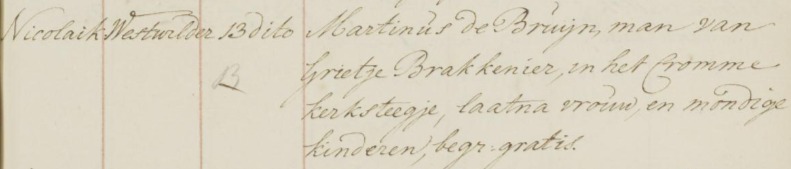 Nicolaik Westwilder 13 dito Martinus de Bruijn, man van
Grietje Brakkenier, in het Cromme
13
kerksteegje, laatna vrouw, en mondige
kinderen, begr: gratis.